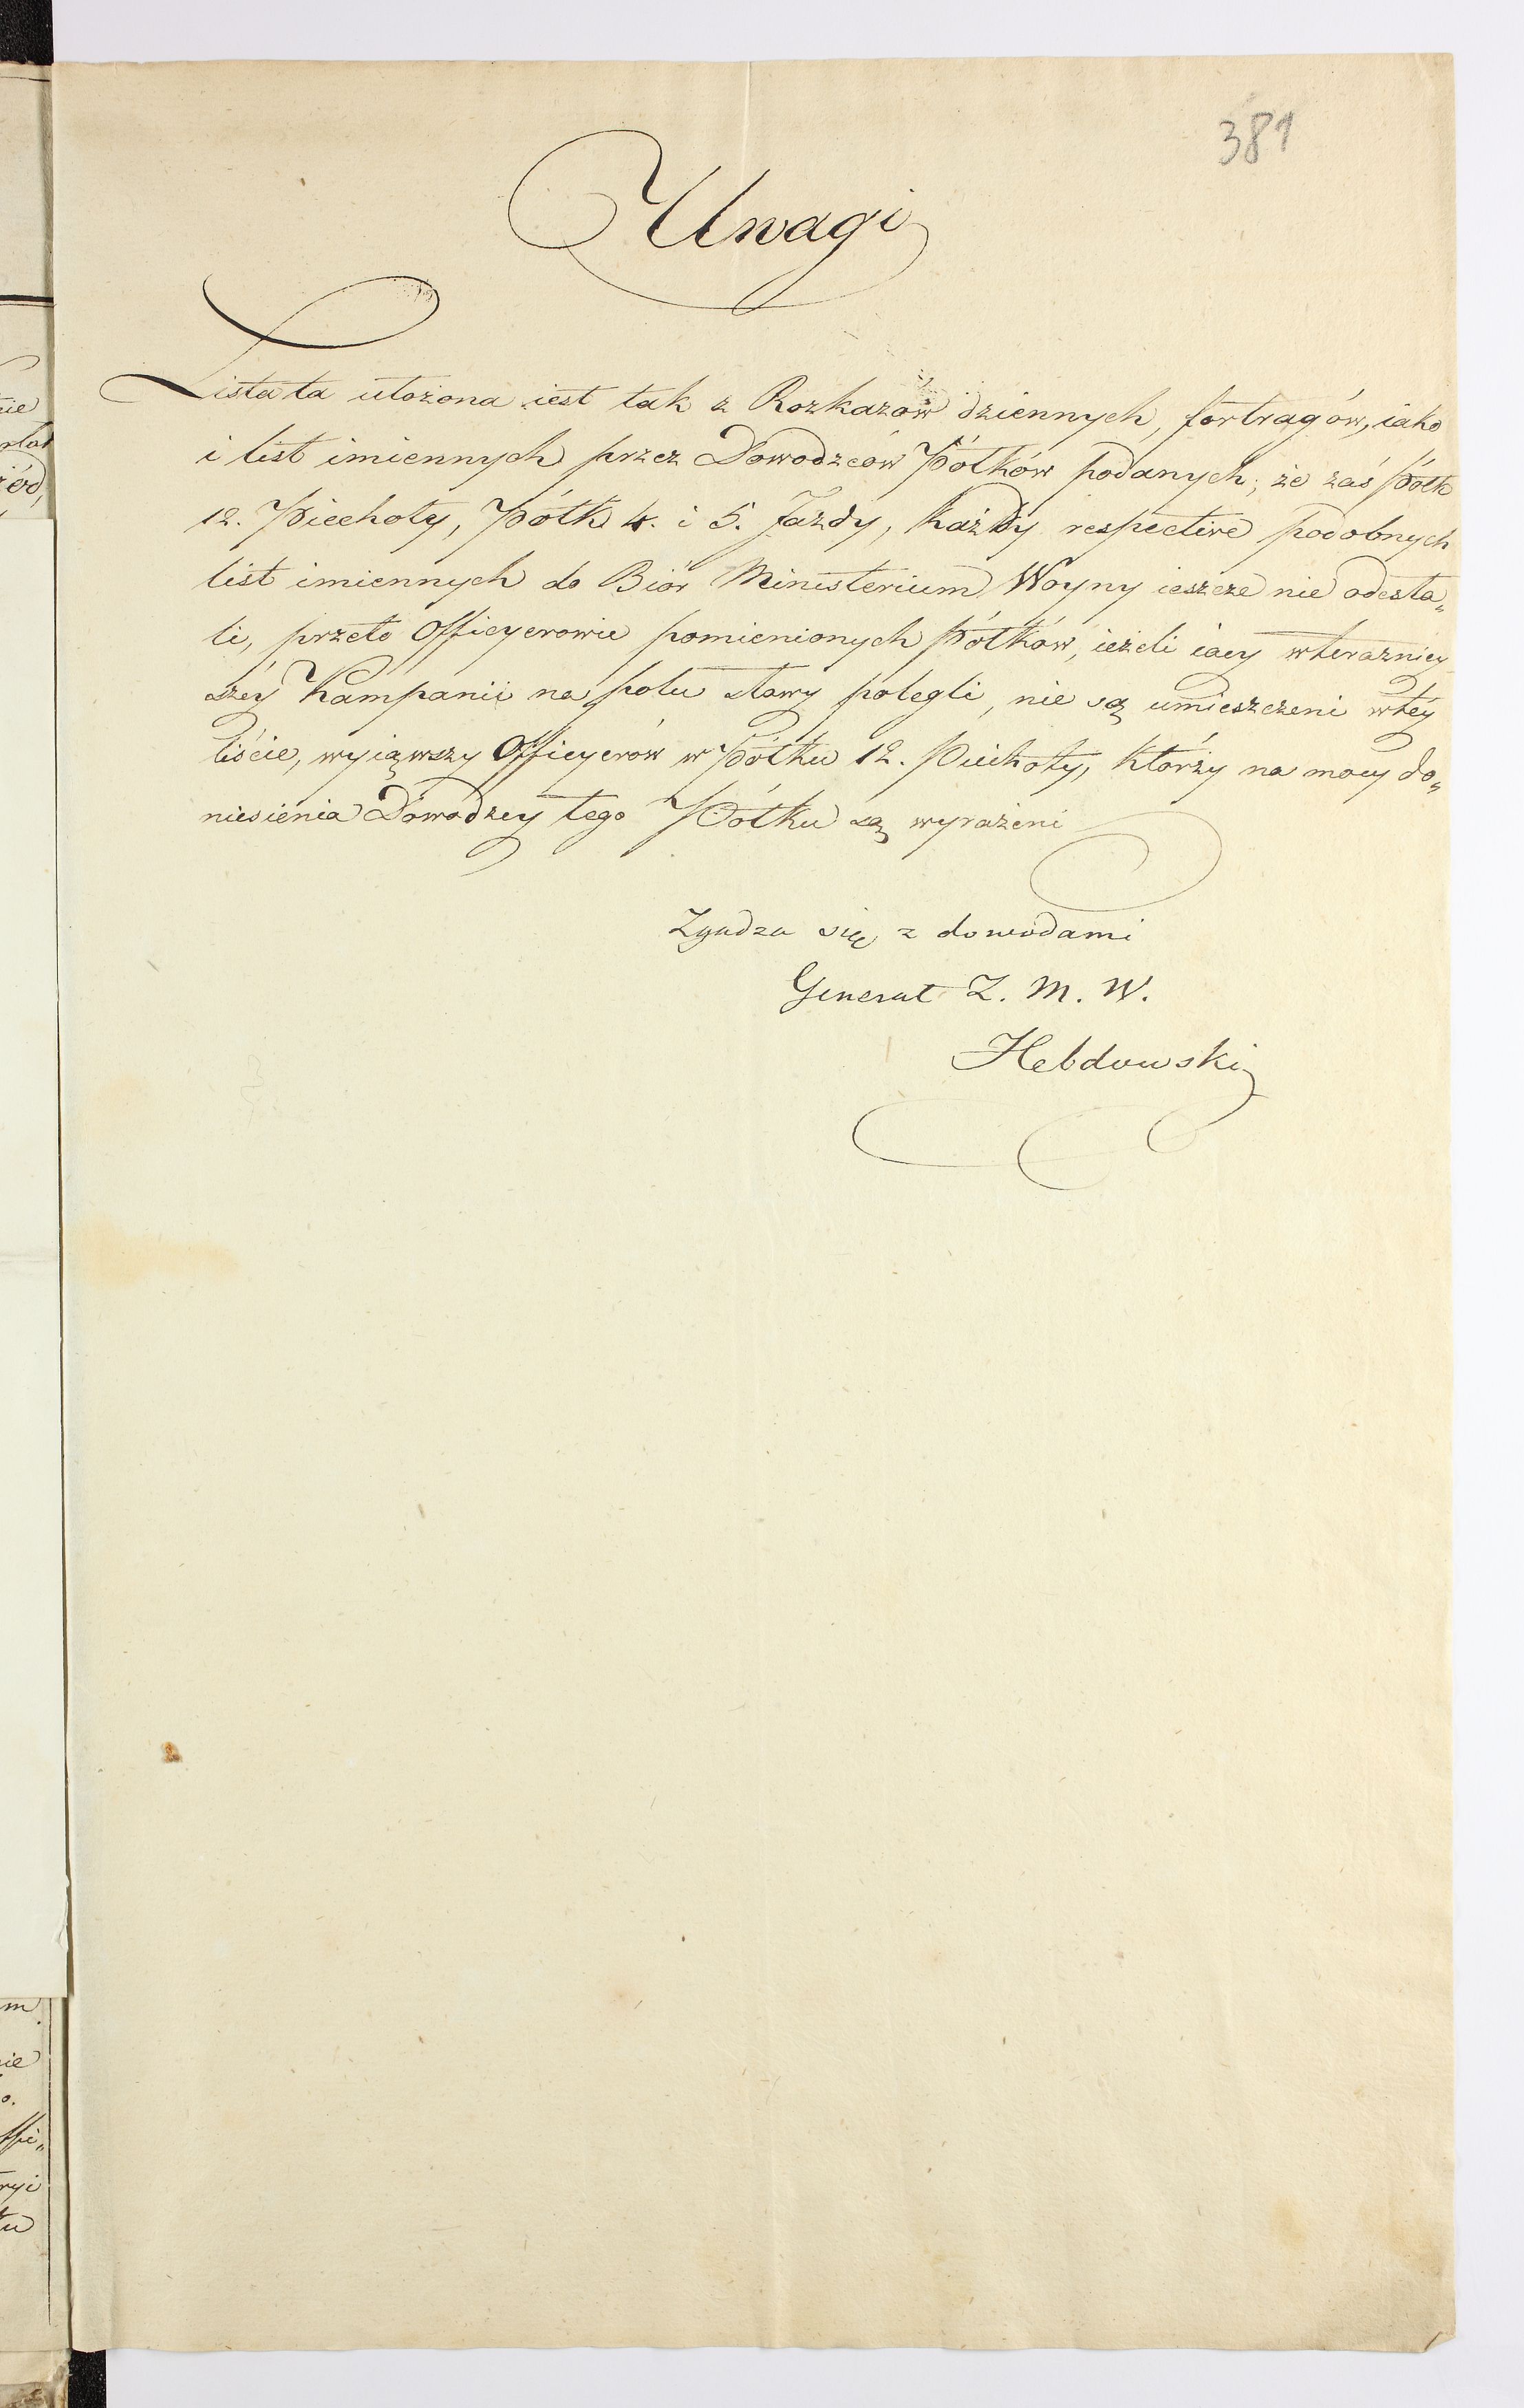 381
Uwagi
Lista ta ułożona iest tak z Rozkazów dziennych, fortragów, iako
i list imiennych przez Dowodzców Półków podanych; że zaś Półk
12. Piechoty, Półk 4. i 5. Jazdy, każdy respective podobnych
list imiennych do Biór Ministerium Woyny ieszcze nie odesła„
li, przeto Officyerowie pomienionych Półków, ieżeli iacy wterazniey
szey Kampanii na polu sławy polegli, nie są umieszczeni wtéy
liście, wyiąwszy Officyerów w Półku 12. Piechoty, którzy na mocy do„
niesienia Dowodzcy tego Półku są wyrażeni
Zgadza się z dowodami
Generał Z. M. W.
Hebdowski